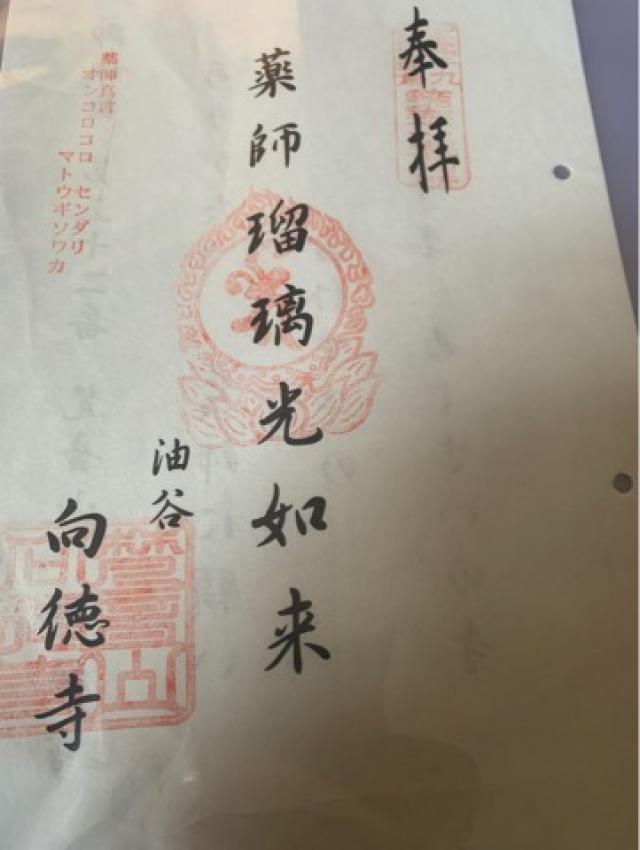 奉拝
薬師瑠璃光如来
油谷
向徳寺
薬師真言
オンコロコロ センダリ
マトウギソワカ